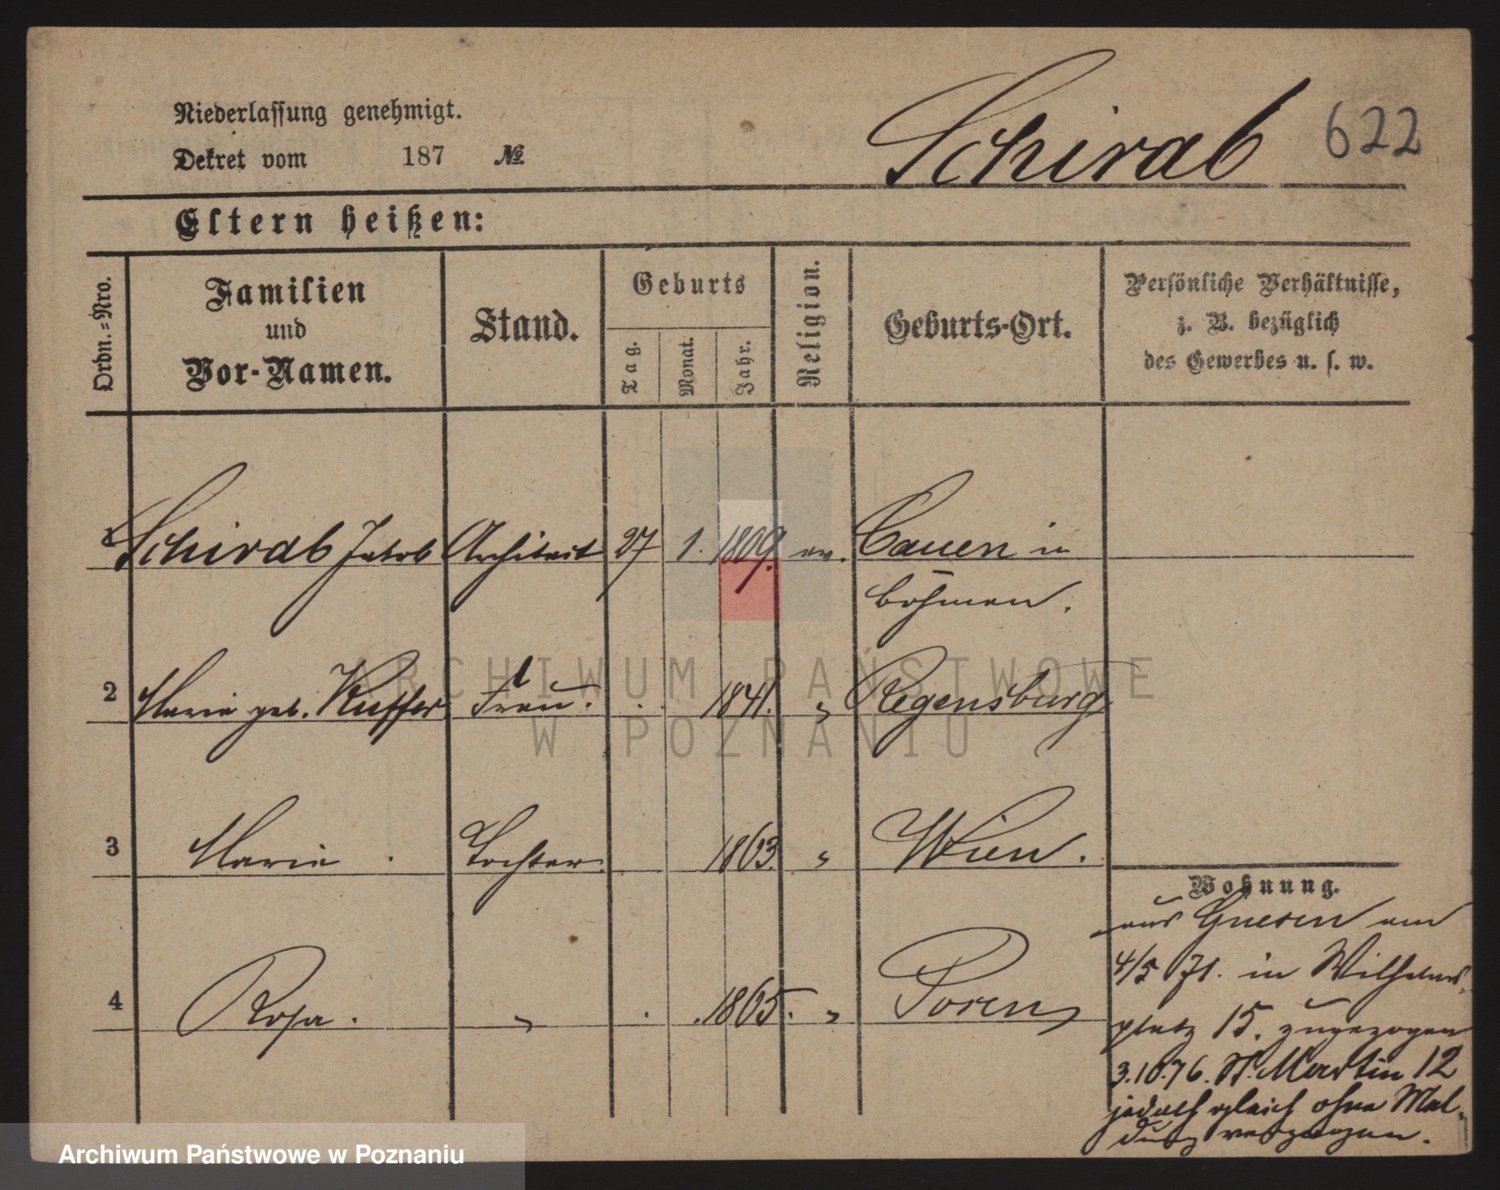 Niederlassung genehmigt.
Dekret vom 187 №
Schirab 622
Eltern heißen:
Ordn.=Nro.
Familien
und
Vor-Namen.
Stand.
Geburts
Tag.
Monat.
Jahr.
Religion.
Geburts-Ort.
Persönliche Verhältnisse,
z. B. bezüglich
des Gewerbes u. s. w.
1 Schirab Jakob Architect 27 1. 1809. ev. Cauen in
Böhmen.
2 Marie geb. Kuffer Frau. 1841. " Regensburg
3 Marie Tochter 1863. " Wien.
4 Rosa. " 1865. " Posen
Wohnung.
aus Gnesen am
4/5 71. in Wilhelms-
platz 15. zugezogen
3.10.76. St. Martin 12
jedoch gleich ohne Mel-
dung verzogen.
ARCHIWUM PAŃSTWOWE
W POZNANIU
Archiwum Państwowe w Poznaniu